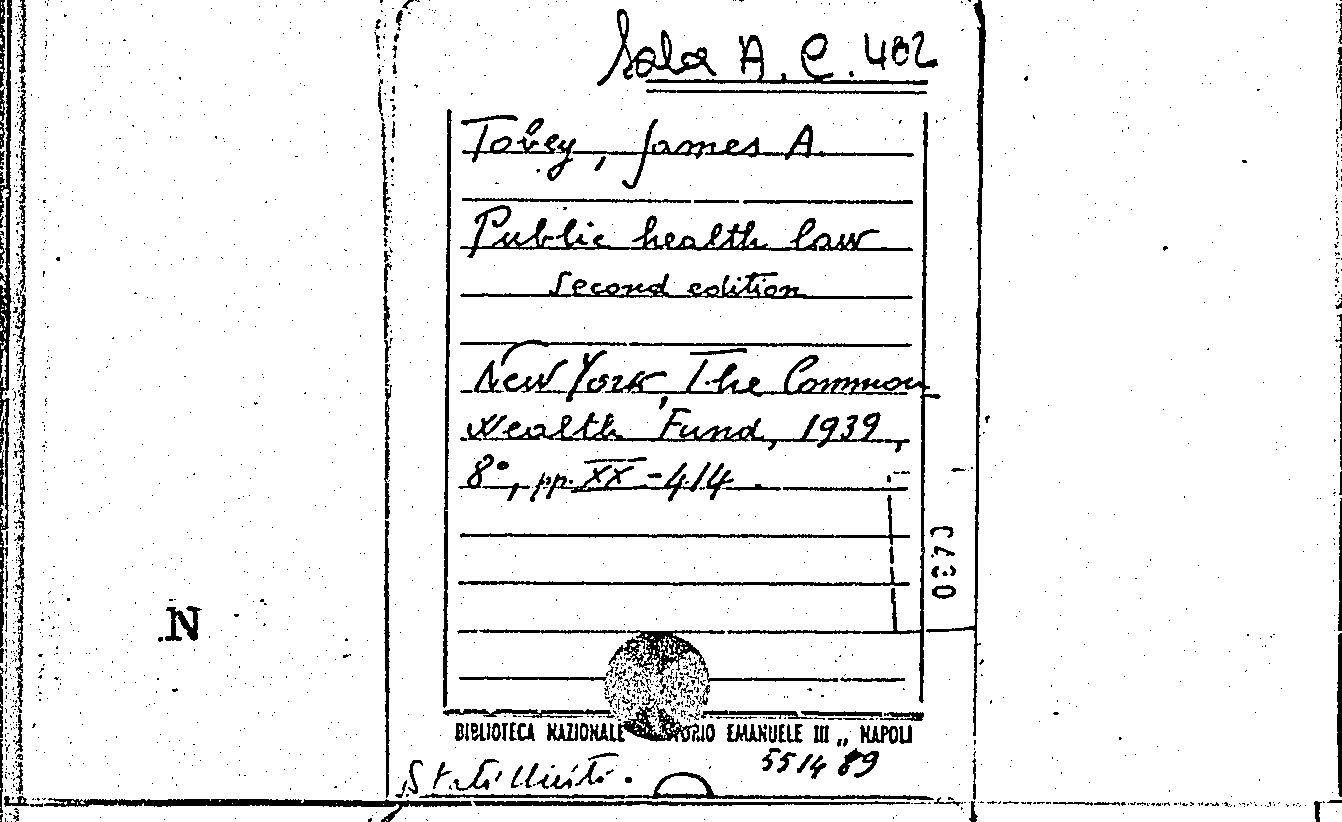 Sala A. C. 402
Tobey, James A.
Public health law
Second edition
New York, The Common
Wealth Fund, 1939,
8°, pp. XX-414.
0370
N
BIBLIOTECA NAZIONALE EMANUELE III „ NAPOLI
551489
Stati Uniti.